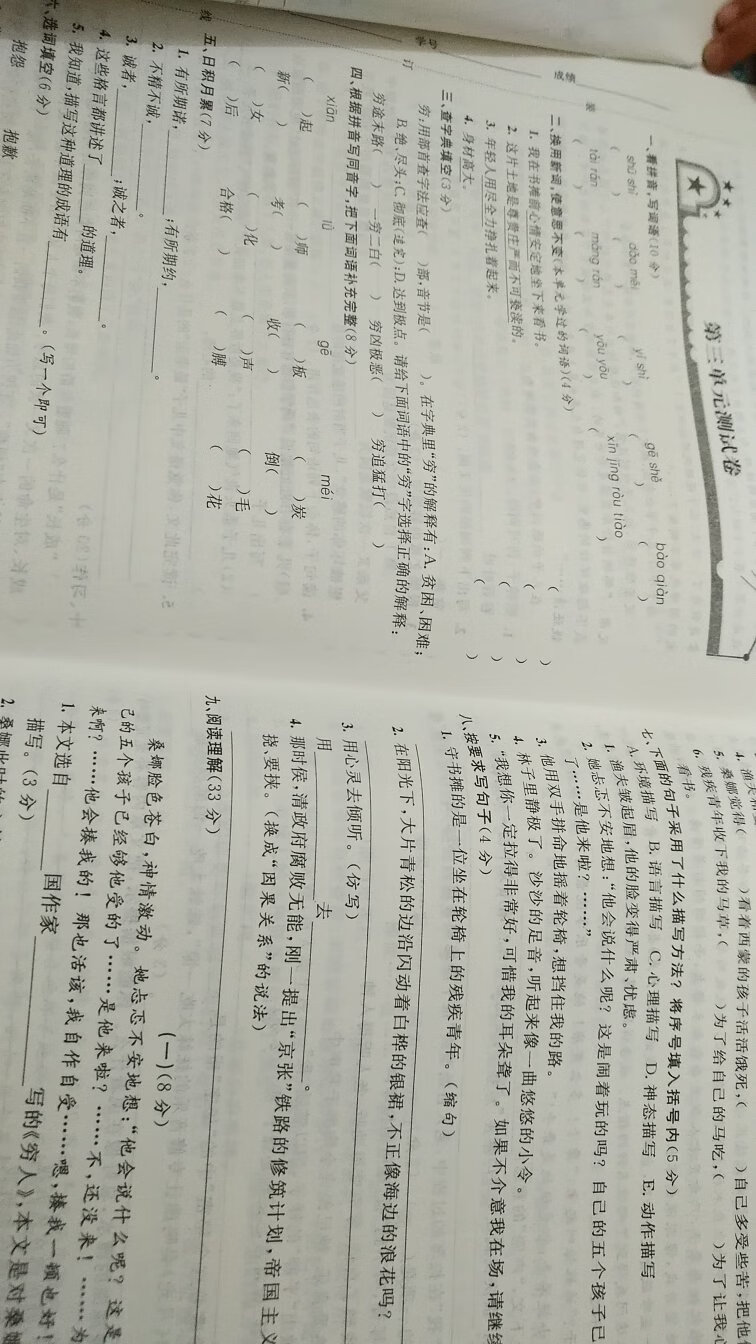 学号
成绩
装
订
线
第三单元测试卷
一、看拼音,写词语(10分)
shū shì ào mèi yí shì gē shě bào qiàn
( ) ( ) ( ) ( ) ( )
tài rán máng rán yōu yōu xīn jīng ròu tiào
( ) ( ) ( ) ( )
二、换用新词,使意思不变(本单元学过的词语)(4分)
1. 我在书摊前心情安定地坐下来看书。 ( )
2. 这片土地是尊贵庄严而不可亵渎的。 ( )
3. 年轻人用尽全力挣扎着起来。 ( )
4. 身材高大。 ( )
三、查字典填空(3分)
穷:用部首查字法应查( )部,音节是( )。在字典里“穷”的解释有:A. 贫困、困难;
B. 绝、尽头;C. 彻底(追究);D. 达到极点。请给下面词语中的“穷”字选择正确的解释:
穷途末路( ) 一穷二白( ) 穷凶极恶( ) 穷追猛打( )
四、根据拼音写同音字,把下面词语补充完整(8分)
xiān lǜ gē méi
( )起 ( )师 ( )板 ( )炭
新( ) 考( ) 收( ) 倒( )
( )女 ( )化 ( )声 ( )毛
( )后 合格( ) ( )膊 ( )花
五、日积月累(7分)
1. 有所期诺, ;有所期约, 。
2. 不精不诚, 。
3. 诚者, ;诚之者, 。
4. 这些格言都讲述了 的道理。
5. 我知道,描写这种道理的成语有 。(写一个即可)
六、选词填空(6分)
抱怨 抱歉
4. 渔夫和
5. 桑娜觉得( )看着西蒙的孩子活活饿死,( )自己多受些苦,把他
6. 残疾青年收下我的马草,( )为了给自己的马吃,( )为了让我心
看书。
七、下面的句子采用了什么描写方法?将序号填入括号内(5分)
A. 环境描写 B. 语言描写 C. 心理描写 D. 神态描写 E. 动作描写
1. 渔夫皱起眉,他的脸变得严肃、忧虑。
2. 她忐忑不安地想:“他会说什么呢?这是闹着玩的吗?自己的五个孩子已
了……是他来啦?……”
3. 他用双手拼命地摇着轮椅,想挡住我的路。
4. 林子里静极了。沙沙的足音,听起来像一曲悠悠的小令。
5. “我想你一定拉得非常好,可惜我的耳朵聋了。如果不介意我在场,请继续
八、按要求写句子(4分)
1. 守书摊的是一位坐在轮椅上的残疾青年。(缩句)
2. 在阳光下,大片青松的边沿闪动着白桦的银裙,不正像海边的浪花吗?
3. 用心灵去倾听。(仿写)
用 去 。
4. 那时侯,清政府腐败无能,刚一提出“京张”铁路的修筑计划,帝国主义
挠、要挟。(换成“因果关系”的说法)
九、阅读理解(33分)
(一)(8分)
桑娜脸色苍白,神情激动。她忐忑不安地想:“他会说什么呢?这是
己的五个孩子已经够他受的了……是他来啦?……不,还没来!……为
来啊?……他会揍我的!那也活该,我自作自受……嗯,揍我一顿也好!
1. 本文选自 国作家 写的《穷人》,本文是对桑娜
描写。(3分)
2. 桑娜此时的